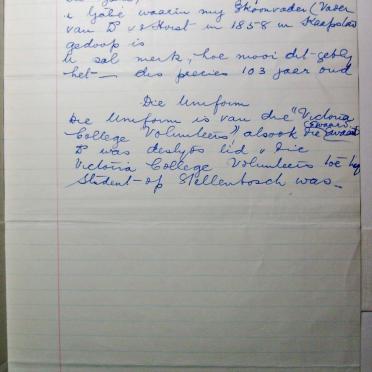 u tjabé waarin my Skoonvader (Vader
van D v d Horst in 1858 in Kaapstad
gedoop is
U sal merk, hoe mooi dit gebly
het — dis presies 103 jaar oud
Die Uniform
Die Uniform is van die "Victoria
College Volunteers" alsook die swaard
D was destyds lid v die
Victoria College Volunteers toe hy
Student op Stellenbosch was —